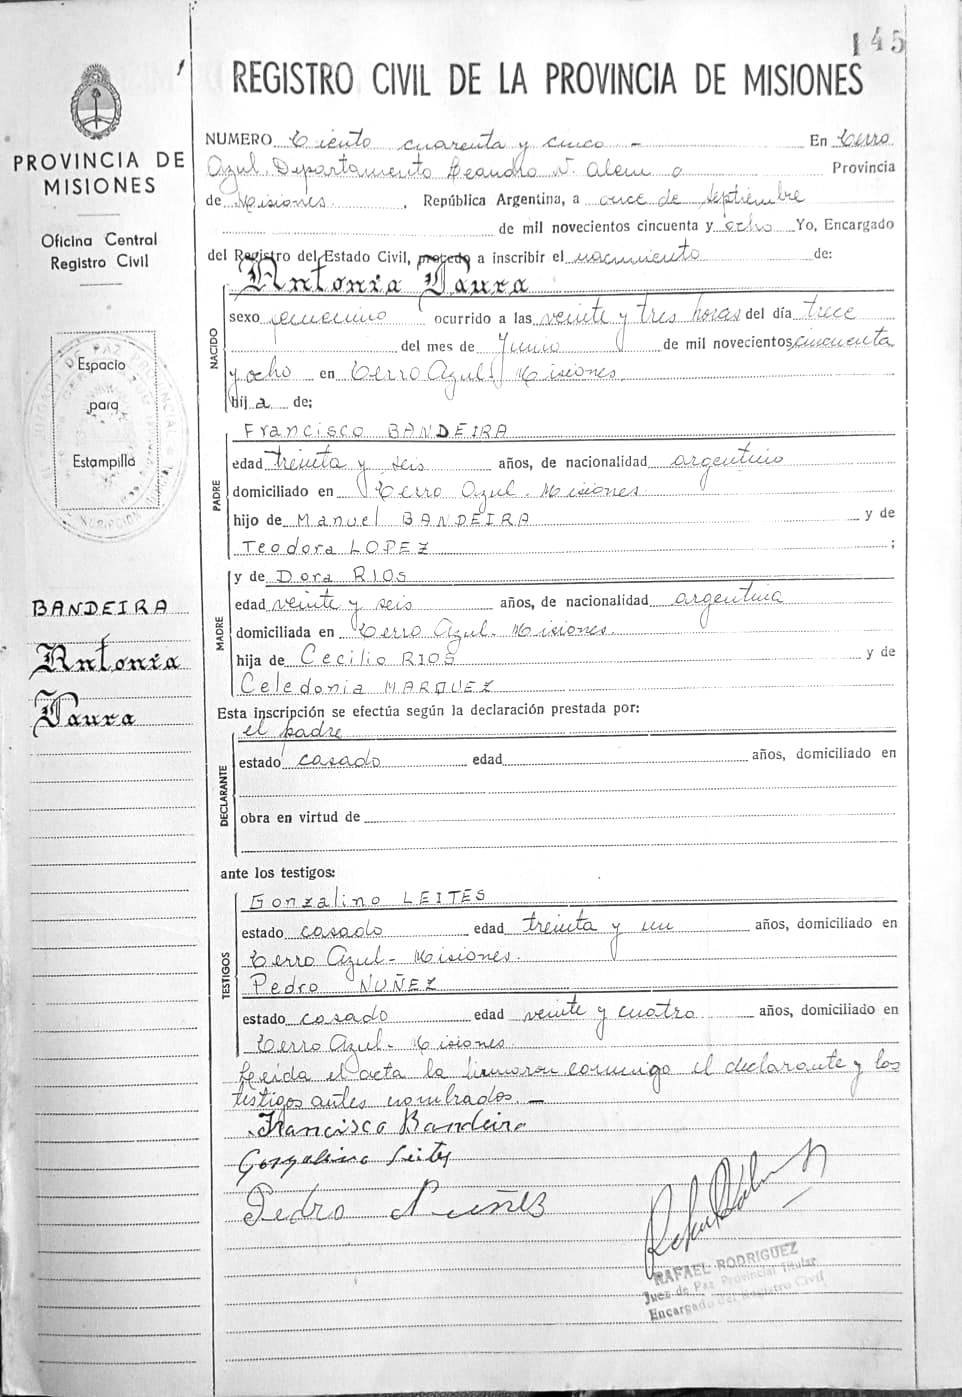 145
REGISTRO CIVIL DE LA PROVINCIA DE MISIONES
PROVINCIA DE
MISIONES
Oficina Central
Registro Civil
Espacio
para
Estampilla
BANDEIRA
Antonia
Laura
NUMERO Ciento cuarenta y cinco - En Cerro
Azul. Departamento Leandro N. Alem o Provincia
de Misiones. República Argentina, a once de septiembre
de mil novecientos cincuenta y ocho Yo, Encargado
del Registro del Estado Civil, procedo a inscribir el nacimiento de:
Antonia Laura
NACIDO
sexo femenino ocurrido a las veinte y tres horas del día trece
del mes de Junio de mil novecientos cincuenta
y ocho en Cerro Azul. Misiones.
hija de;
PADRE
Francisco BANDEIRA
edad treinta y seis años, de nacionalidad argentino
domiciliado en Cerro Azul. Misiones
hijo de Manuel BANDEIRA y de
Teodora LOPEZ ;
MADRE
y de Dora RIOS
edad veinte y seis años, de nacionalidad argentina
domiciliada en Cerro Azul. Misiones.
hija de Cecilio RIOS y de
Celedonia MARQUEZ
Esta inscripción se efectúa según la declaración prestada por:
DECLARANTE
el padre
estado casado edad años, domiciliado en
obra en virtud de
ante los testigos:
TESTIGOS
Gonzalino LEITES
estado casado edad treinta y un años, domiciliado en
Cerro Azul - Misiones.
Pedro NUÑEZ
estado casado edad veinte y cuatro años, domiciliado en
Cerro Azul - Misiones.
Leida el acta la firmaron conmigo el declarante y los
testigos antes nombrados. -
Francisco Bandeira
Gonzalino Leites
Pedro Nuñez
RAFAEL RODRIGUEZ
Juez de Paz Provincial Titular
Encargado del Registro Civil